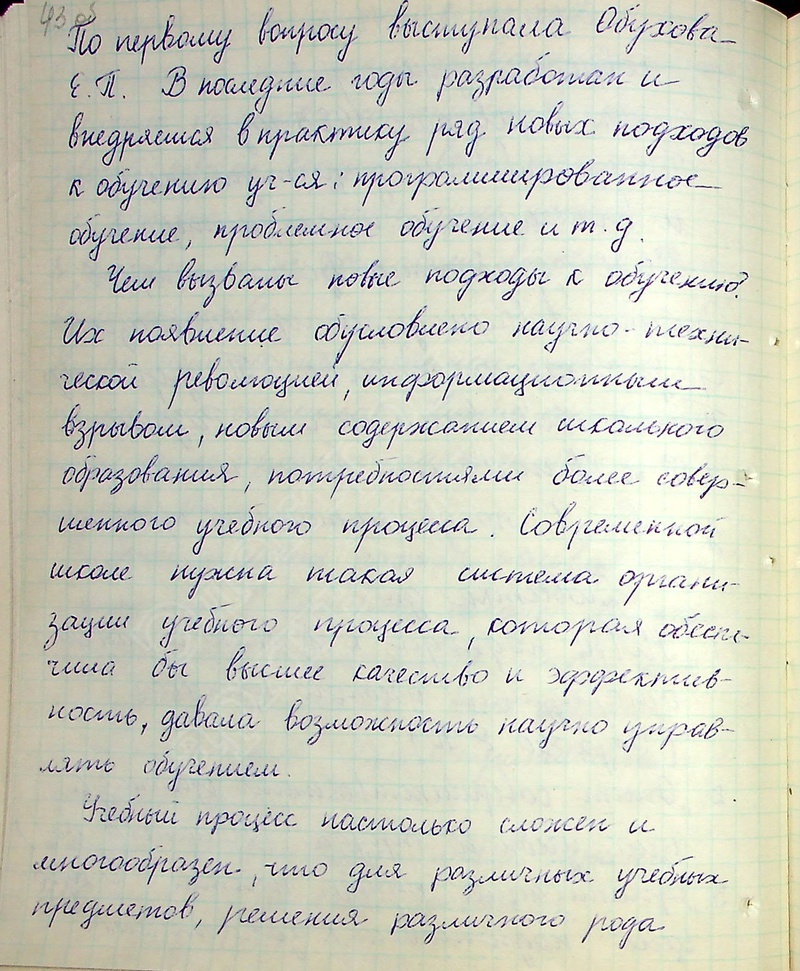 43 об
По первому вопросу выступала Обухова
Е.П. В последние годы разработан и
внедряется в практику ряд новых подходов
к обучению уч-ся: программированное
обучение, проблемное обучение и т.д.
Чем вызваны новые подходы к обучению?
Их появление обусловлено научно-техни-
ческой революцией, информационным
взрывом, новым содержанием школьного
образования, потребностями более совер-
шенного учебного процесса. Современной
школе нужна такая система органи-
зации учебного процесса, которая обеспе-
чила бы высшее качество и эффектив-
ность, давала возможность научно управ-
лять обучением.
Учебный процесс настолько сложен и
многообразен, что для различных учебных
предметов, решения различного рода